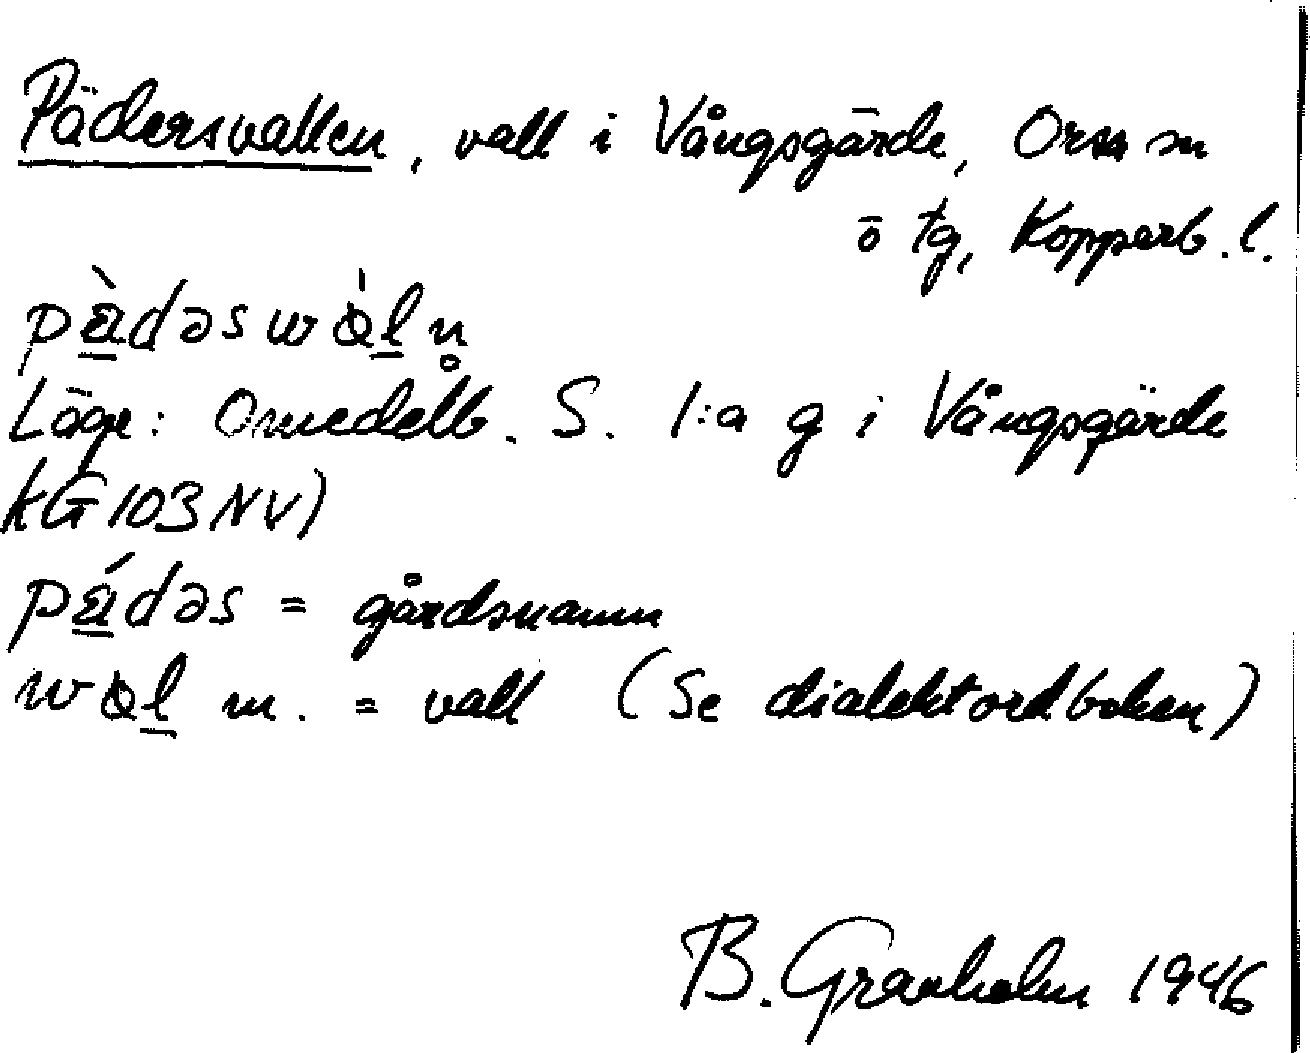 Pädersvallen, vall i Vångsgärde, Orsa sn
ö tg, Kopparb. l.
pæ̀dəswàl̥n̥
Läge: Omedelb. S. 1:a g i Vångsgärde
kG 103 NV)
pǽdəs = gårdsnamn
wȧl m. = vall (Se dialektordboken)
B. Granholm 1946